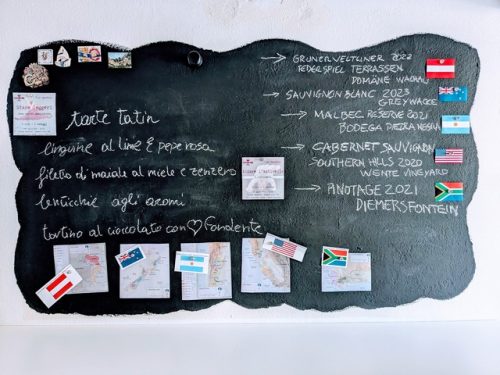 Stare leggeri
tarte tatin
linguine al lime E pepe rosa
filetto di maiale al miele e zenzero
lenticchie agli aromi
tortino al cioccolato con ♡ fondente
→ GRÜNER VELTLINER 2022
FEDERSPIEL TERRASSEN
DOMÄNE WACHAU
→ SAUVIGNON BLANC 2023
GREYWACKE
→ MALBEC RESERVE 2021
BODEGA PIEDRA NEGRA
→ CABERNET SAUVIGNON
SOUTHERN HILLS 2020
WENTE VINEYARD
→ PINOTAGE 2021
DIEMERSFONTEIN